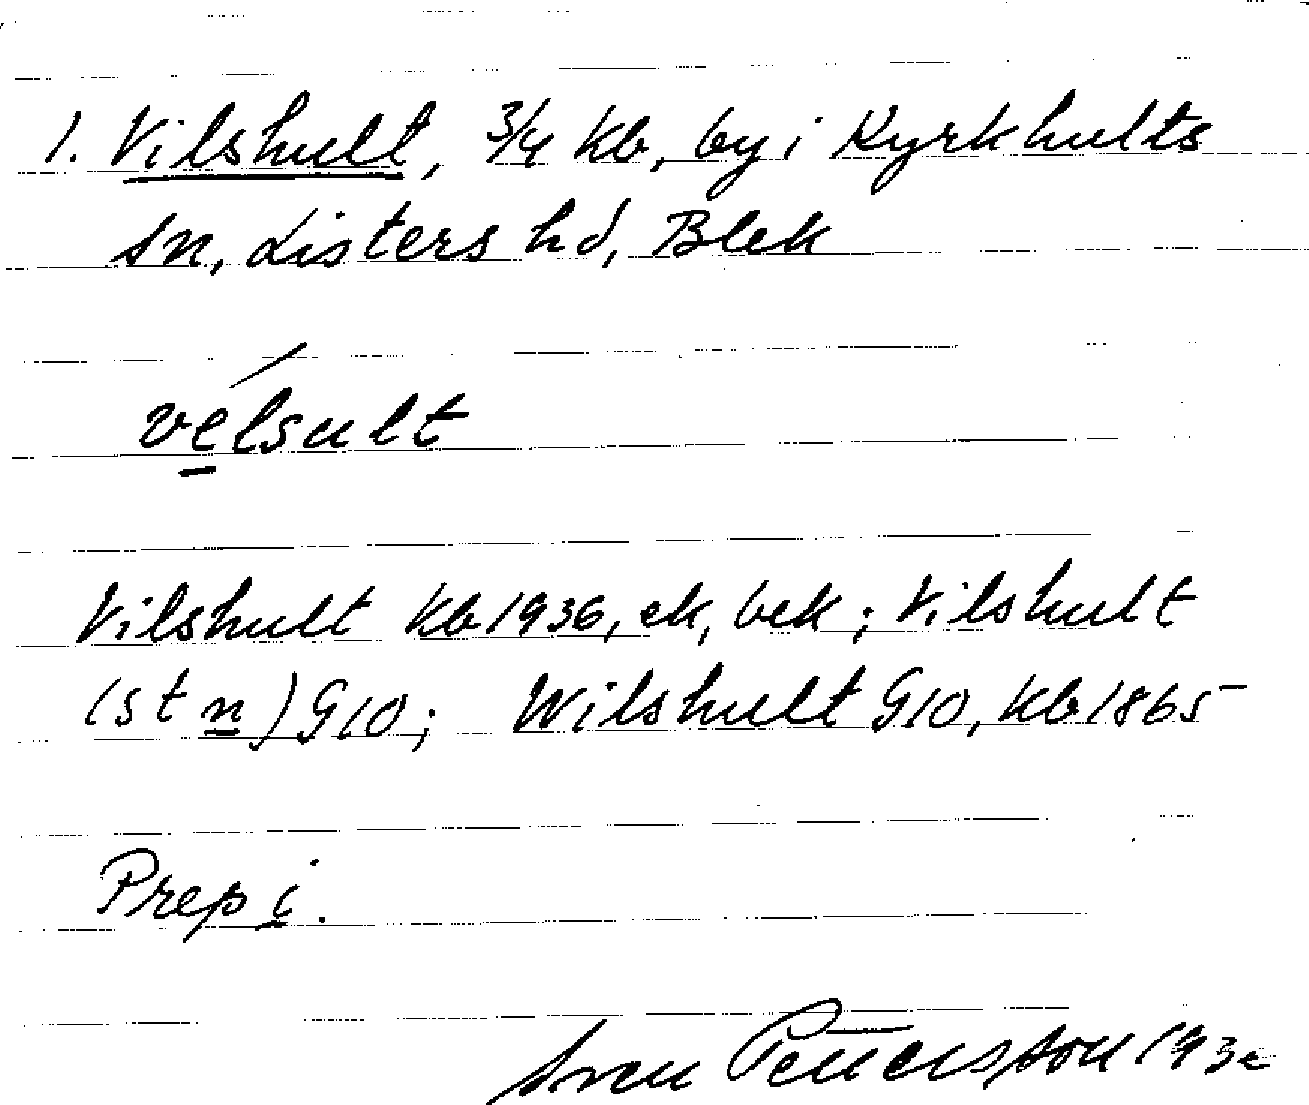 1. Vilshult, 3/4 kb, by i Kyrkhults
sn, Listers hd, Blek
vélsult
Vilshult kb 1936, ek, bek; Vilshult
(stn) G10; Wilshult G10, kb 1865
Prep i.
Sven Pettersson